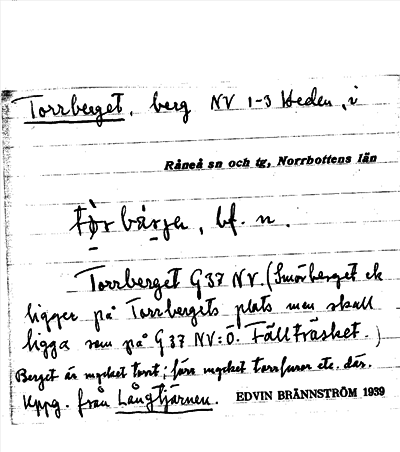 Torrberget, berg NV 1-3 Heden, i
Råneå sn och tg, Norrbottens län
bf. n.
Torrberget G37 NV. (Småberget ek
ligger på Torrbergets plats men skall
ligga som på G 37 NV: Ö. Fällträsket.)
Berget är mycket torrt; förr mycket torrfuror etc. där.
Uppg. från Långtjärnen. EDVIN BRÄNNSTRÖM 1939